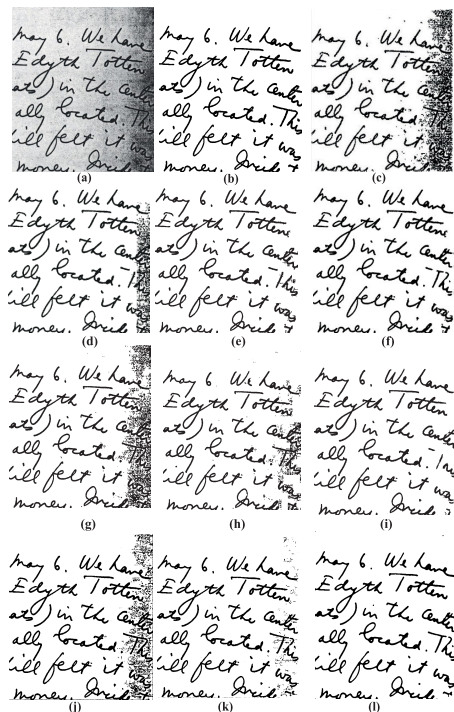 may 6. We have
Edyth Totten
ats) in the center
ally located. This
ill felt it was
money.
(a)
may 6. We have
Edyth Totten
ats) in the center
ally located. This
ill felt it was
money.
(b)
may 6. We have
Edyth Totten
ats) in the center
ally located. This
ill felt it was
money.
(c)
may 6. We have
Edyth Totten
ats) in the center
ally located.
ill felt it was
money.
(d)
may 6. We have
Edyth Totten
ats) in the center
ally located. This
ill felt it was
money.
(e)
may 6. We have
Edyth Totten
ats) in the center
ally located. This
ill felt it was
money.
(f)
may 6. We have
Edyth Totten
ats) in the center
ally located. This
ill felt it was
money.
(g)
may 6. We have
Edyth Totten
ats) in the center
ally located. This
ill felt it was
money.
(h)
may 6. We have
Edyth Totten
ats) in the center
ally located.
ill felt it was
money.
(i)
may 6. We have
Edyth Totten
ats) in the center
ally located. This
ill felt it was
money.
(j)
may 6. We have
Edyth Totten
ats) in the center
ally located. This
ill felt it was
money.
(k)
may 6. We have
Edyth Totten
ats) in the center
ally located. This
ill felt it was
money.
(l)